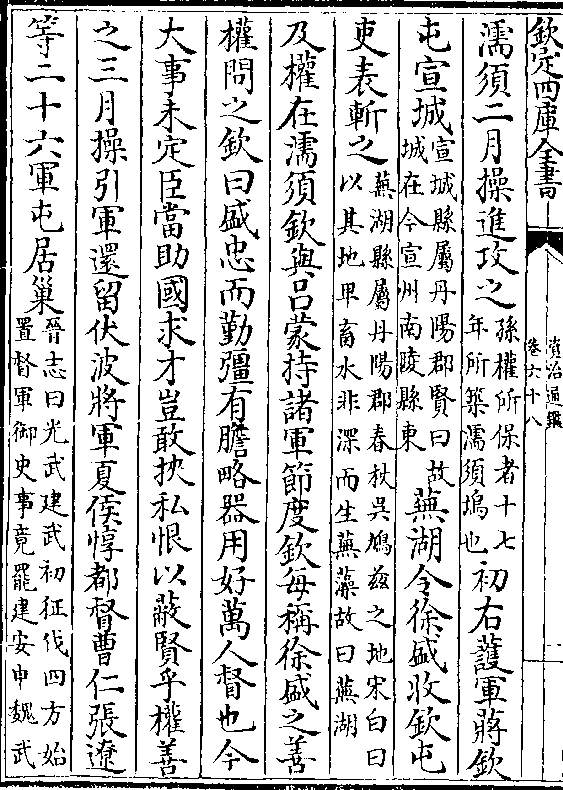 欽定四庫全書
資治通鑑
卷六十八
濡須二月操進攻之孫權所保者十七年所築濡須塢也初右䕶軍蔣欽
屯宣城宣城縣屬丹陽郡賢曰故城在今宣州南陵縣東蕪湖令徐盛收欽屯
吏表斬之蕪湖縣屬丹陽郡春秋吳鳩兹之地宋白曰以其地卑畜水非深而生蕪藻故曰蕪湖
及權在濡須欽與吕蒙持諸軍節度欽每稱徐盛之善
權問之欽曰盛忠而勤彊有膽略器用好萬人督也今
大事未定臣當助國求才豈敢挾私恨以蔽賢乎權善
之三月操引軍還留伏波將軍夏侯惇都督曹仁張遼
等二十六軍屯居巢晉志曰光武建武初征伐四方始置督軍御史事竟罷建安中魏武